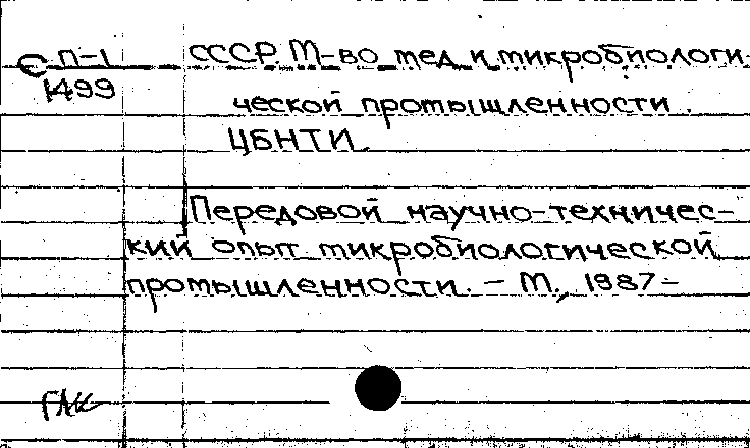 Є П-1 СССР. М-во мед. и микробиологи-
1499
ческой промышленности.
ЦБНТИ.
Передовой научно-техничес-
кий опыт микробиологической
промышленности. - М., 1987-